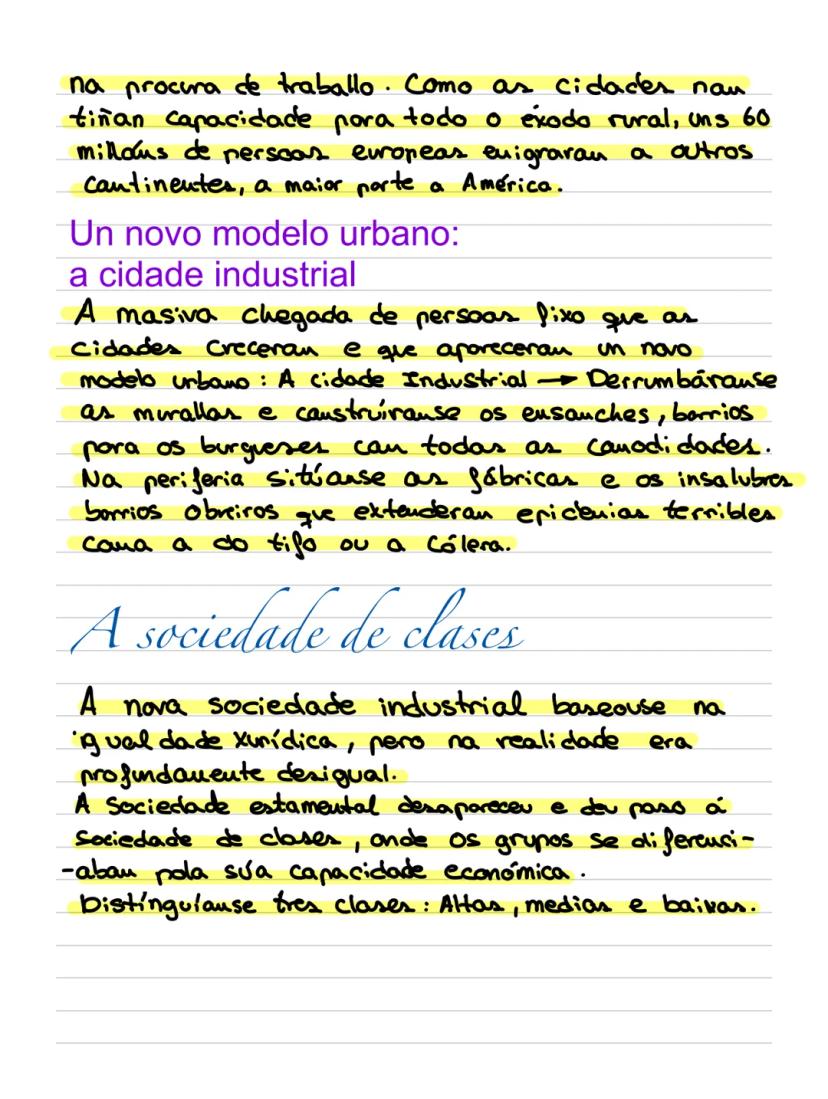 na procura de traballo. Como as cidades non
tiñan capacidade para todo o éxodo rural, uns 60
millóns de persoas europeas emigraron a outros
continentes, a maior parte a América.
Un novo modelo urbano:
a cidade industrial
A masiva chegada de persoas fixo que as
cidades creceran e que apareceran un novo
modelo urbano: A cidade Industrial → Derrumbáronse
as murallas e construíronse os ensanches, barrios
para os burgueses con todas as comodidades.
Na periferia sitúanse as fábricas e os insalubres
barrios obreiros que extenderan epidemias terribles
coma a do tifo ou a Cólera.
A sociedade de clases
A nova sociedade industrial baseouse na
igualdade xurídica, pero na realidade era
profundamente desigual.
A Sociedade estamental desapareceu e deu paso á
sociedade de clases, onde os grupos se diferenci-
-aban pola súa capacidade económica.
Distínguíanse tres clases: Altas, medias e baixas.